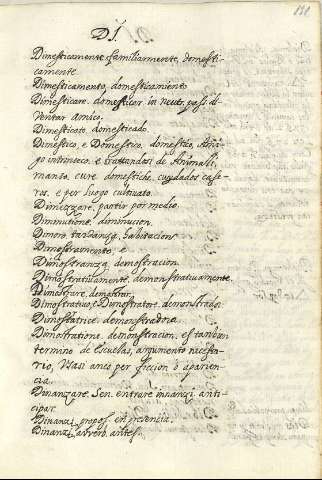 121
DI.
Dimesticamente, familiarmente, domesti-
camente.
Dimesticamento, domesticamiento
Dimesticare, domesticar in neutr. pass. di-
ventar amico.
Dimesticato, domesticado.
Dimestico, e Domestico, domestico, Ami-
go intrinseco, e trattandosi de Animali
manso, cure domestiche, cuydados case-
ros, e per luogo cultivato.
Dimezzare, partir por medio.
Diminutione, diminucion.
Dimoro, tardanza, habitacion
Dimostramento, e
Dimostranza, demostracion.
Dimostrativamente, demonstrativamente.
Dimostrare, demostrar,
Dimostrativo, e Dimostratore, demonstrador
Dimostratrice, demonstradora
Dimostratione, demonstracion, es tambien
termino de Escuelas, argumento necessa-
rio, Vzasi anco per ficcion o aparien-
cia.
Dinanzare, Sen. entrare innanzi, anti-
cipar.
Dinanzi, propos. en presencia.
Dinanzi, adverb. antes.